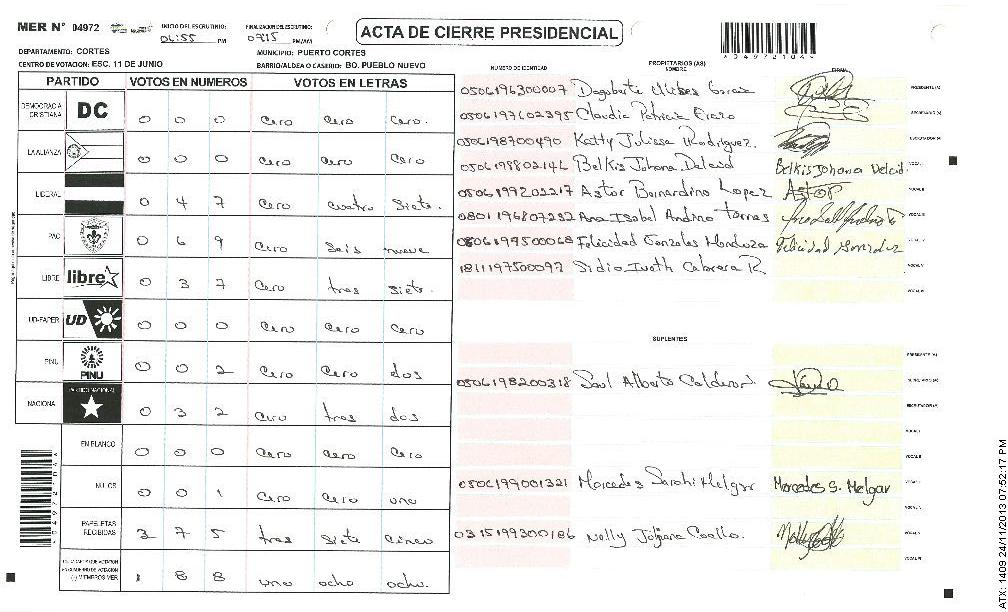 MER N° 04972 INICIO DEL ESCRUTINIO: FINALIZACION DEL ESCRUTINIO: ACTA DE CIERRE PRESIDENCIAL
04:55 PM 07:15 PM/AM
DEPARTAMENTO: CORTES MUNICIPIO: PUERTO CORTES
CENTRO DE VOTACION: ESC. 11 DE JUNIO BARRIO/ALDEA O CASERIO: BO. PUEBLO NUEVO
*049721044*
PARTIDO VOTOS EN NUMEROS VOTOS EN LETRAS
DEMOCRACIA CRISTIANA DC 0 0 0 Cero Cero Cero.
LA ALIANZA 0 0 0 Cero Cero Cero
LIBERAL 0 4 7 Cero cuatro Siete.
PAC 0 6 9 Cero Seis nueve
LIBRE libre 0 3 7 Cero tres siete.
UD-FAPER UD 0 0 0 Cero Cero Cero
PINU PINU 0 0 2 Cero Cero dos
NACIONAL PARTIDO NACIONAL 0 3 2 Cero tres dos
EN BLANCO 0 0 0 Cero Cero Cero
NULOS 0 0 1 Cero Cero uno
PAPELETAS RECIBIDAS 3 7 5 tres siete cinco
MIEMBROS MER 1 8 8 uno ocho ocho.
NUMERO DE IDENTIDAD PROPIETARIOS (AS) NOMBRE FIRMA
0506196300007 Dagoberto PRESIDENTE (A)
0506197602395 Claudia Patricia Erazo SECRETARIO (A)
0506198700490 Katty Julissa Rodriguez. ESCRUTADOR (A)
0506198802146 Belkis Johana Delcid Belkis Johana Delcid. VOCAL I
0506199202217 Astor Bernardino Lopez Astor VOCAL II
0801196807232 Ana Isabel Andino Torres VOCAL III
0506199500068 Felicidad Gonzales Mendoza Felicidad Gonzalez VOCAL IV
1811197500097 Sidio Iveth Cabrera R. VOCAL V
VOCAL VI
SUPLENTES
PRESIDENTE (A)
0506198200318 Saul Alberto SECRETARIO (A)
ESCRUTADOR (A)
VOCAL I
VOCAL II
0506199001321 Mercedes Sarahi Melgar Mercedes S. Melgar VOCAL III
VOCAL IV
0315199300186 Nelly Coello. Nelly VOCAL V
VOCAL VI
ATX: 1409 24/11/2013 07:52:17 PM